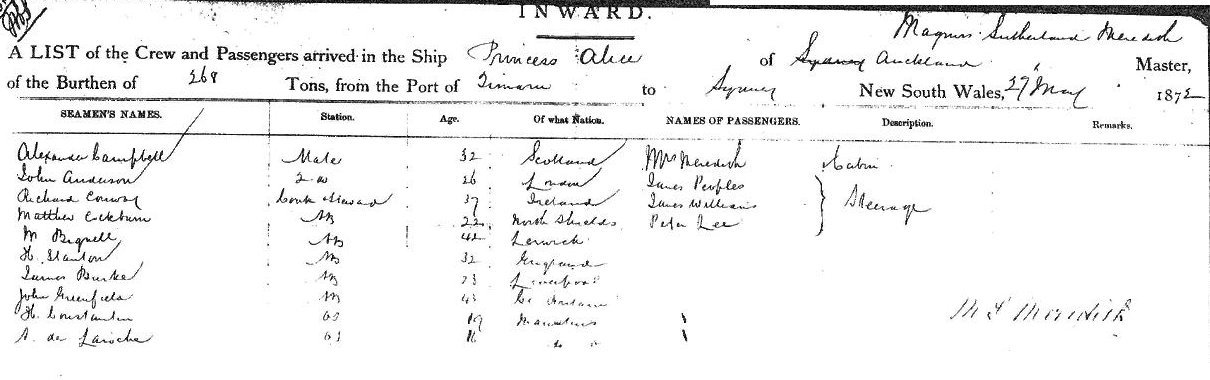 INWARD.
Magnus Sutherland Meredith
A LIST of the Crew and Passengers arrived in the Ship Princess Alice of Sydney Auckland Master,
of the Burthen of 268 Tons, from the Port of Timaru to Sydney New South Wales, 27 May 1872
SEAMEN'S NAMES. Station. Age. Of what Nation. NAMES OF PASSENGERS. Description. Remarks.
Alexander Campbell Mate 32 Scotland Mrs Meredith Cabin
John Anderson 2 do 26 London James Peoples
Richard Conway Cook Steward 37 Ireland James Williams Steerage
Matthew Cockburn AB 22 North Shields Peter Lee
M Bignell AB 42 Lerwick
H. Stanton AB 32 England
James Burke AB 23 Liverpool
John Greenfield AB 43
H. Constantin OS 19 Mauritius
A. de Laroche OS 16 do
M S Meredith